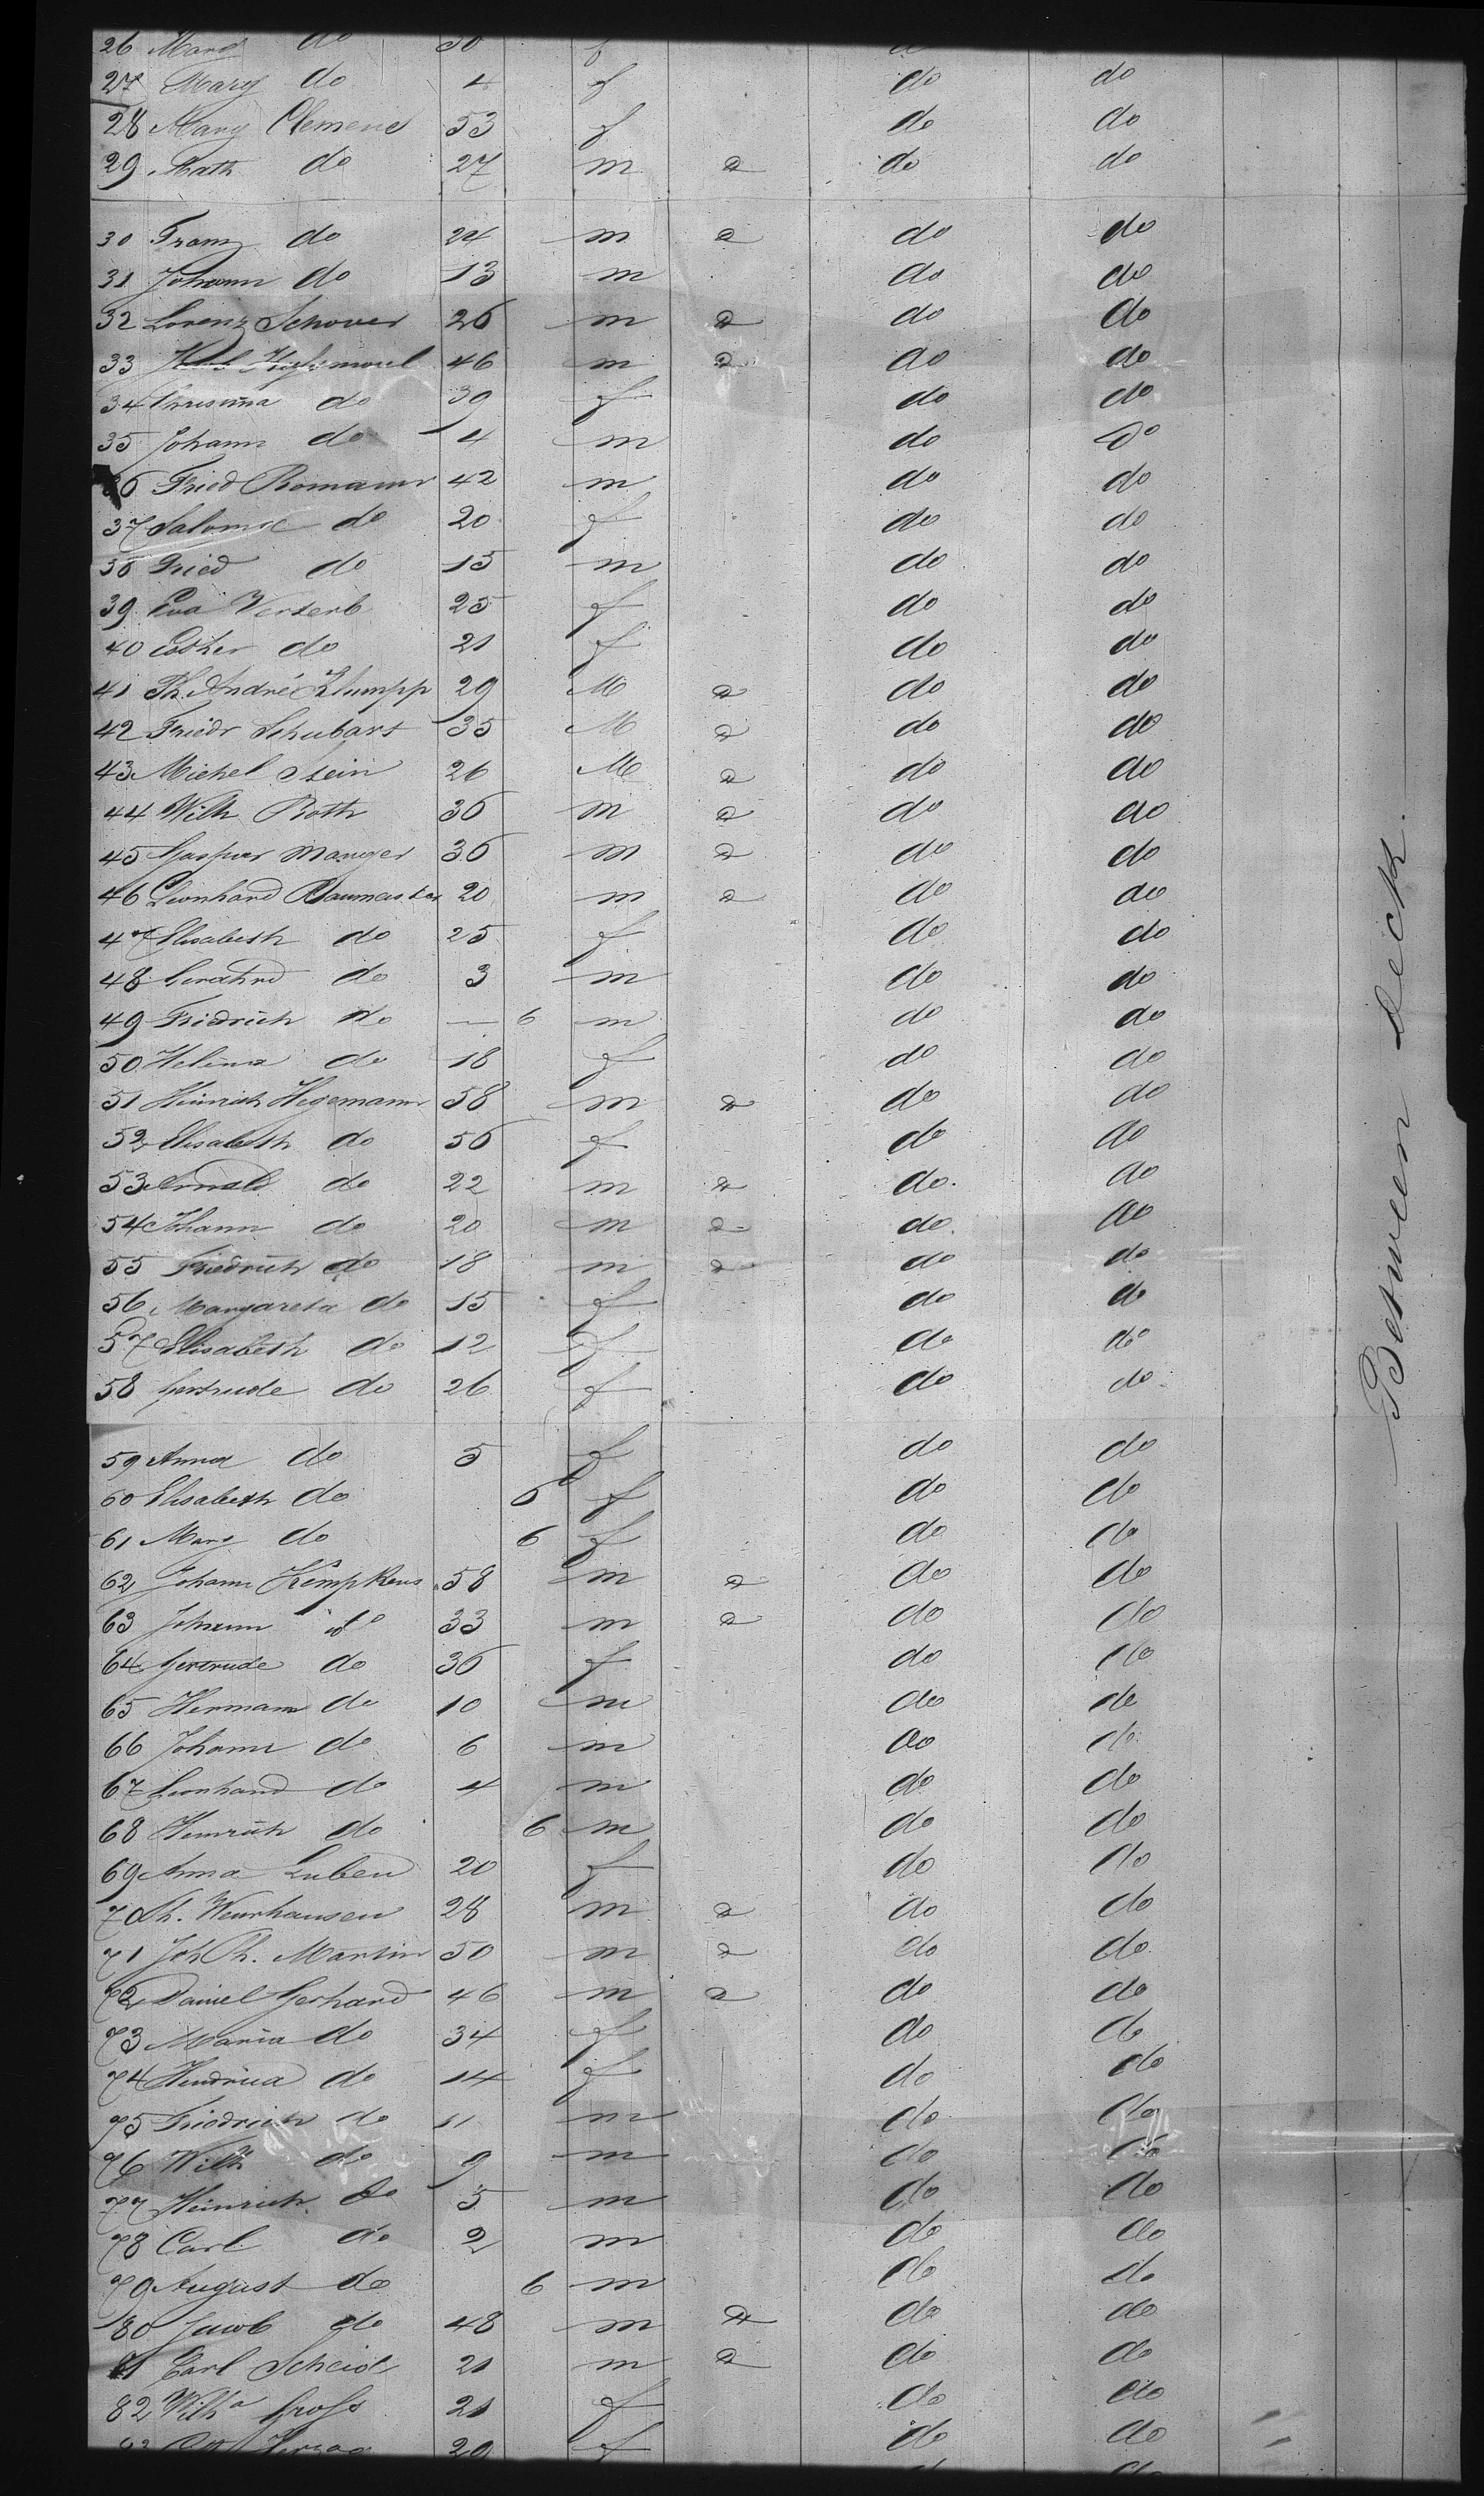 26 Mary do 30 f do
27 Mary do 4 f do do
28 Mary Clemens 53 f do do
29 Math do 27 m a do do
30 Franz do 24 m a do do
31 Johann do 13 m do do
32 Lorenz Schover 26 m a do do
33 46 m a do do
34 Christina do 39 f do do
35 Johann do 4 m do do
36 Fried Romann 42 m do do
37 Salome do 20 f do do
38 Fried do 15 m do do
39 Eva Verserb 25 f do do
40 Esther do 21 f do do
41 Ph. André Klumpp 29 M a do do
42 Friedr Schubart 35 M a do do
43 Michel Stein 26 M a do do
44 Wilh Roth 36 m a do do
45 Gaspar Manger 36 m a do do
46 Leonhard Baumeister 20 m a do do
47 Elisabeth do 25 f do do
48 Gerahrd do 3 m do do
49 Friedrich do — 6 m do do
50 Helena do 18 f do do
51 Heinrich Hegemann 58 m a do do
52 Elisabeth do 56 f do do
53 Arnold do 22 m a do do
54 Johann do 20 m a do do
55 Friedrich do 18 m a do do
56 Margareta do 15 f do do
57 Elisabeth do 12 f do do
58 Gertrude do 26 f do do
59 Anna do 5 f do do
60 Elisabeth do 6 f do do
61 Mary do 6 f do do
62 Johann Kempkens 58 m a do do
63 Johann do 33 m a do do
64 Gertrude do 36 f do do
65 Hermann do 10 m do do
66 Johann do 6 m do do
67 Leonhard do 4 m do do
68 Heinrich do 6 m do do
69 Anna Luben 20 f do do
70 Ph. Weurhausen 28 m a do do
71 Joh Ph. Martin 50 m a do do
72 Daniel Gerhard 46 m a do do
73 Maria do 34 f do do
74 Hendrica do 14 f do do
75 Friedrich do 11 m do do
76 Wilh do 9 m do do
77 Heinrich do 5 m do do
78 Carl do 2 m do do
79 August do 6 m do do
80 Jacob do 48 m a do do
81 Carl Scheid 21 m a do do
82 Wilha Gross 21 f do do
83 Herzog 29 f do do
Between deck.